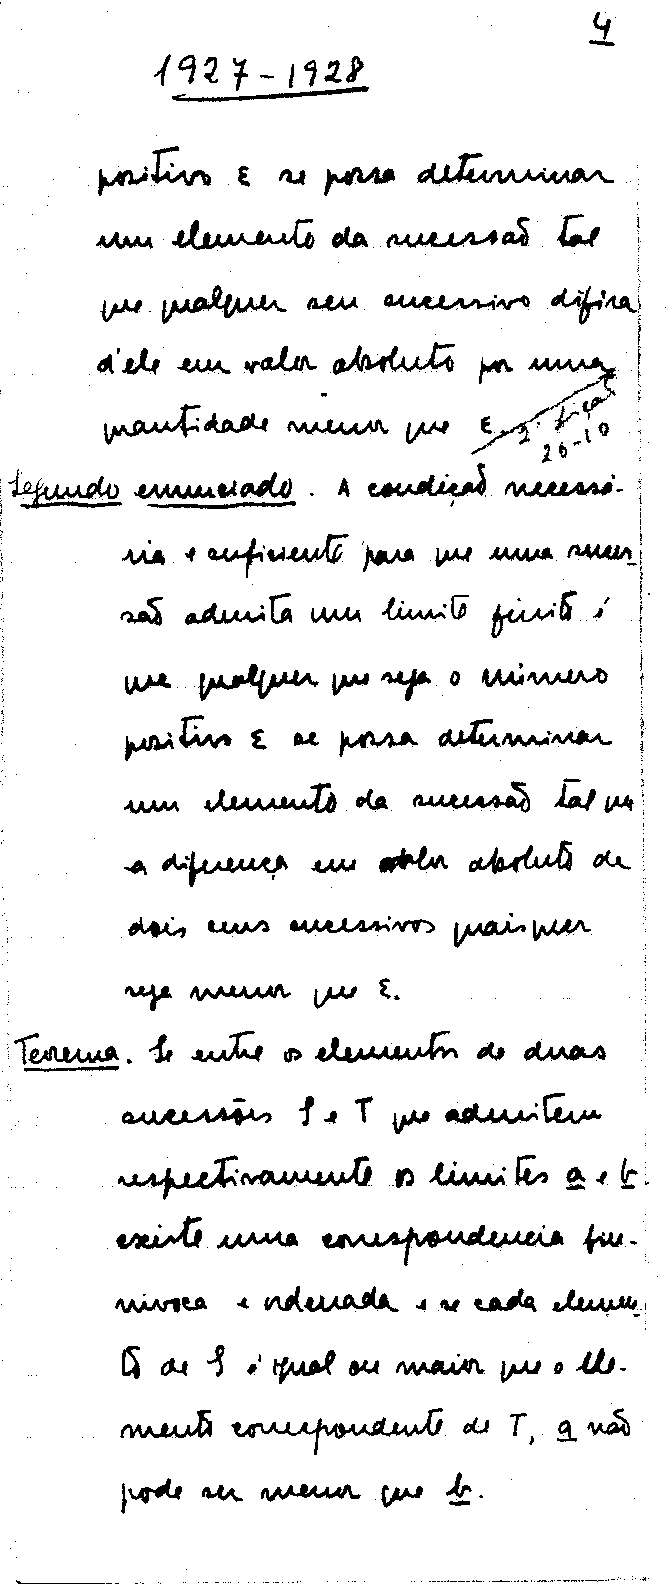 4
1927-1928
positivo ε se possa determinar
um elemento da sucessão tal
que qualquer seu sucessivo difira
d'ele em valor absoluto por uma
quantidade menor que ε
2ª lição
26-10
Segundo enunciado. A condição necessá-
ria e suficiente para que uma suces-
são admita um limite finito é
que qualquer que seja o número
positivo ε se possa determinar
um elemento da sucessão tal que
a diferença em valor absoluto de
dois seus sucessivos quaisquer
seja menor que ε.
Teorema. Se entre os elementos de duas
sucessões S e T que admitem
respectivamente os limites a e b
existe uma correspondencia
nivoca e ordenada e se cada elemen-
to de S é igual ou maior que o ele-
mento correspondente de T, a não
pode ser menor que b.